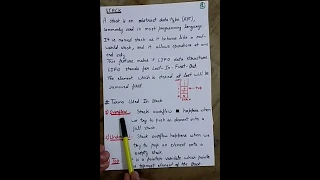 STACK
A stack is an abstract data type (ADT),
commonly used in most programming language
It is named stack as it behaves like a real-
world stack, and it allows operations at one
end only.
This feature makes it LIFO data structure.
LIFO stands for Last-In First-Out.
The element which is stored at last will be
removed first
# Terms Used In Stack
1) Overflow : Stack overflow happens when
we try to push an element onto a
full stack.
2) Stack overflow happens when
we try to pop an element onto a
empty stack
Top is a pointer variable which points
to topmost element of the stack